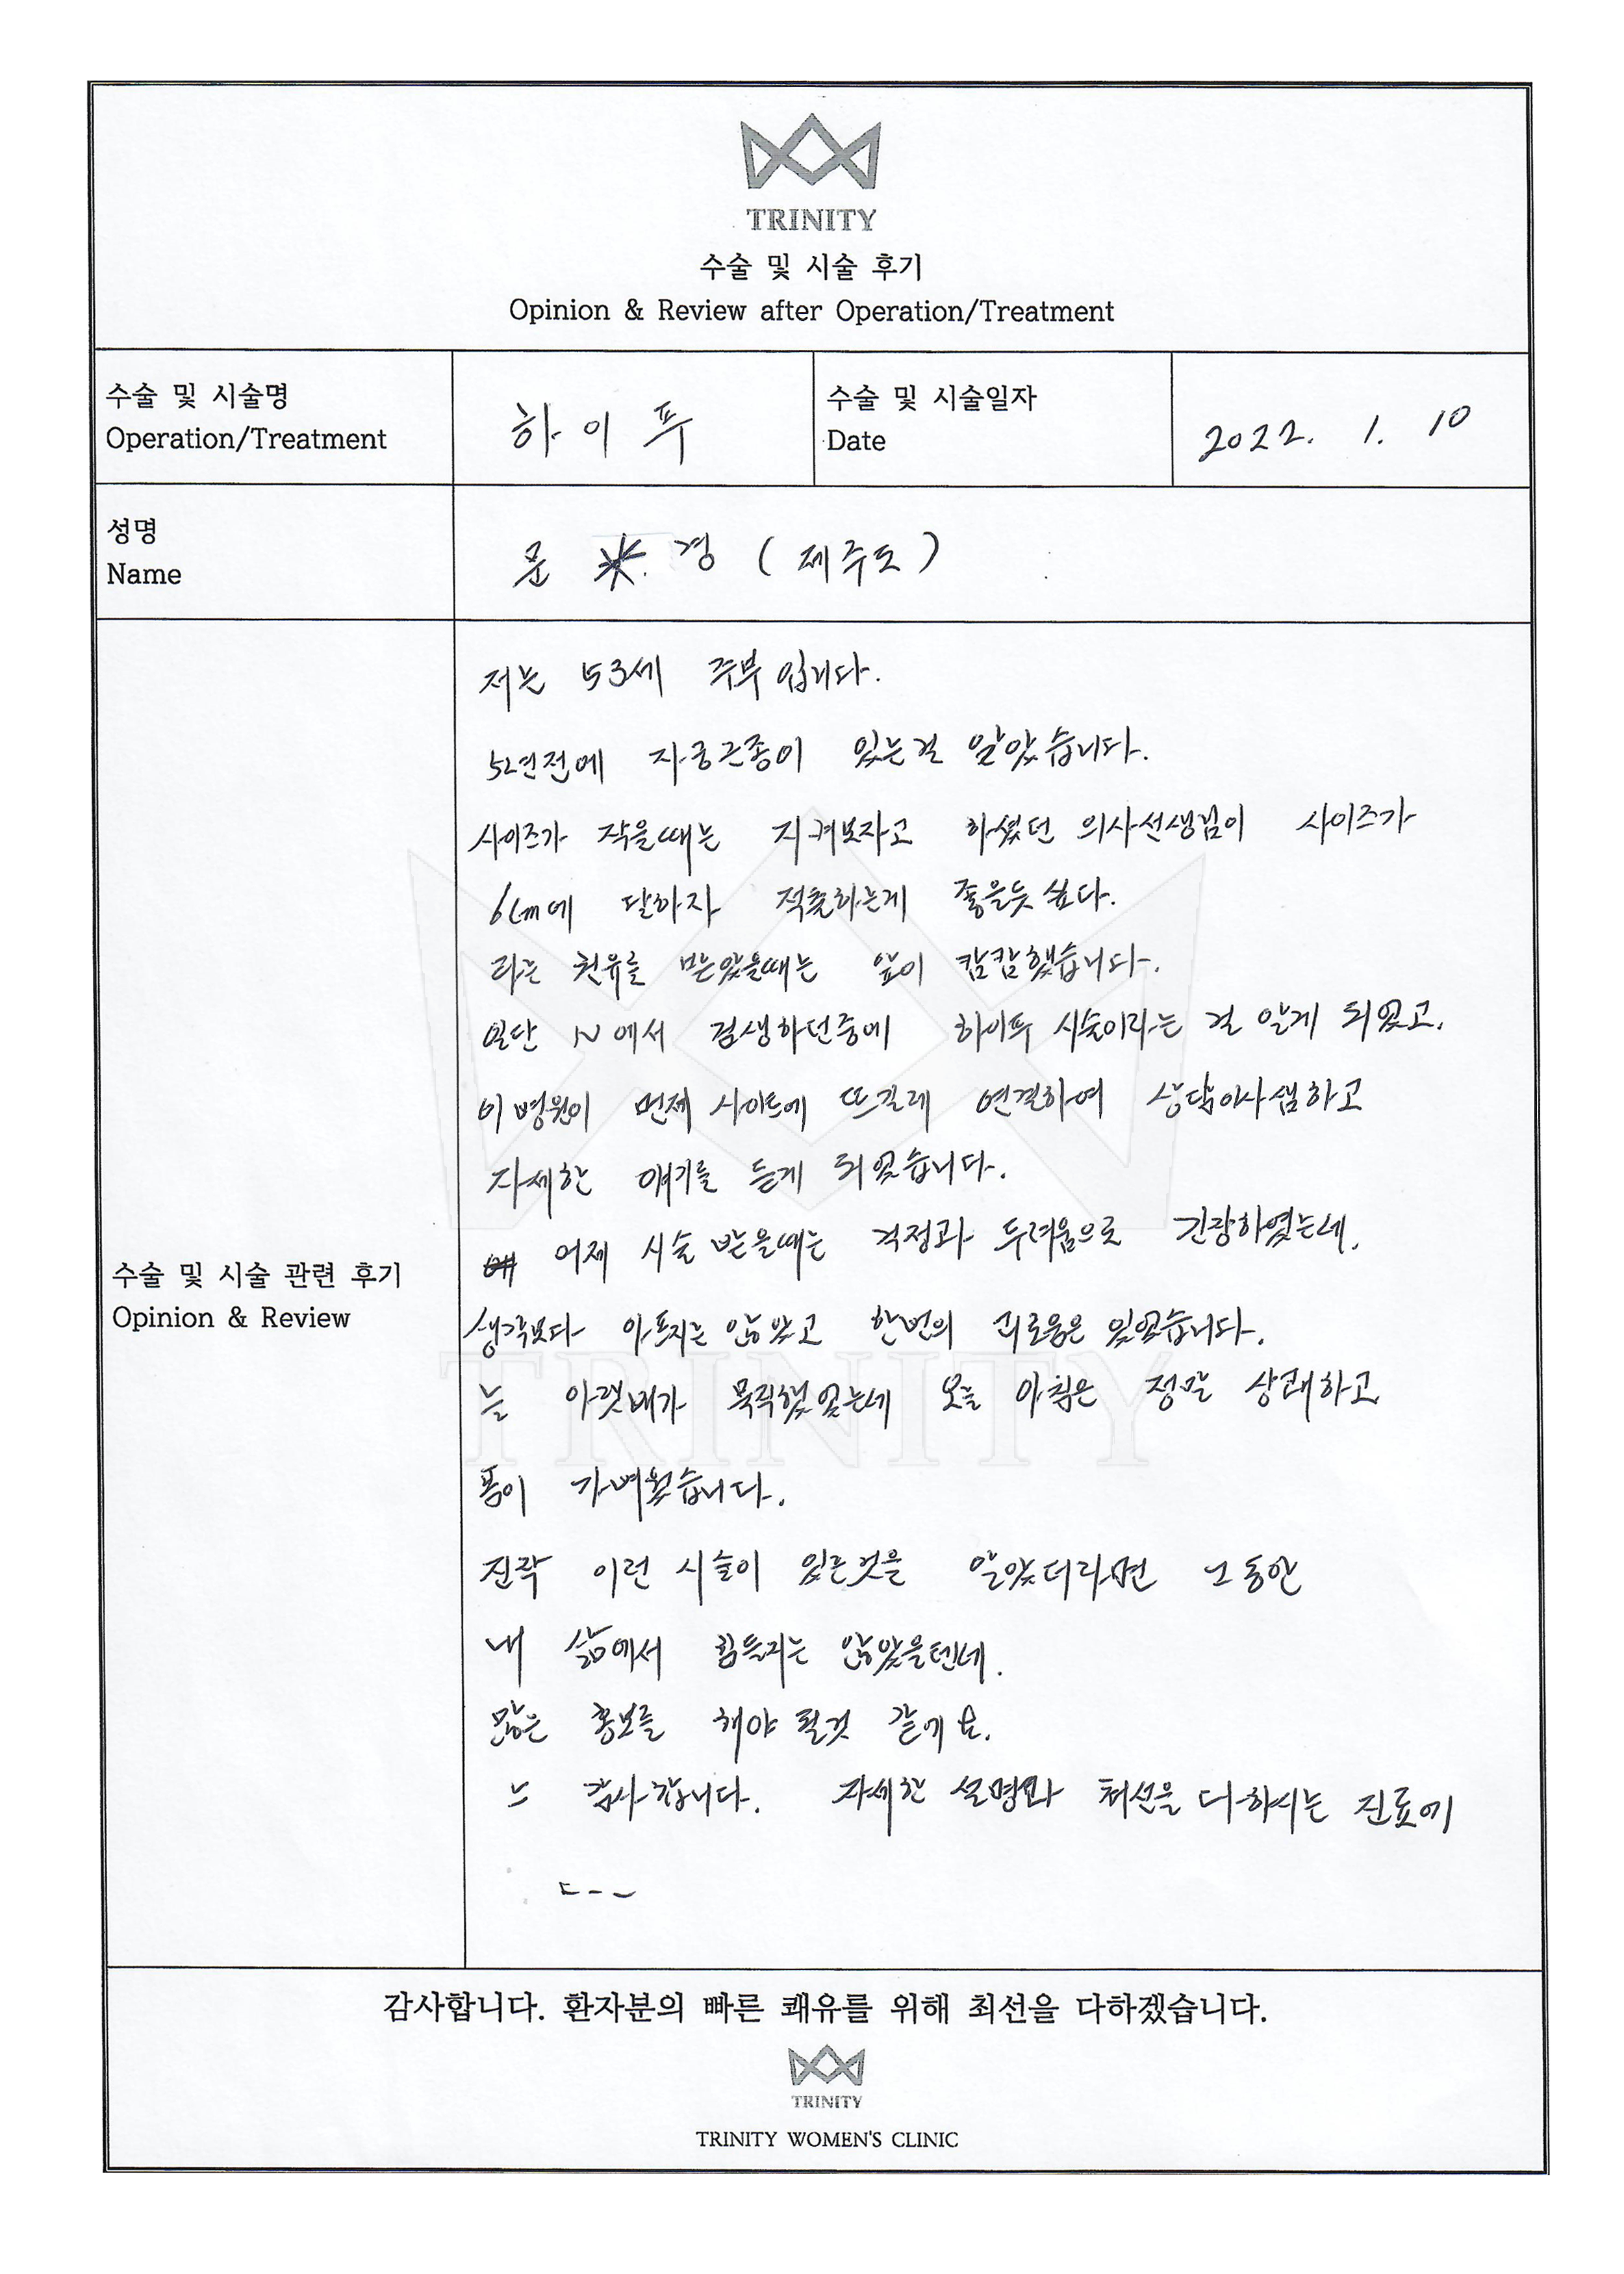 TRINITY
수술 및 시술 후기
Opinion & Review after Operation/Treatment
수술 및 시술명
Operation/Treatment
하이푸
수술 및 시술일자
Date
2022. 1. 10
성명
Name
문 * 경 (제주도)
저는 53세 주부입니다.
5년전에 자궁근종이 있는걸 알았습니다.
사이즈가 작을때는 지켜보자고 하셨던 의사선생님이 사이즈가
6cm에 달하자 적출하는게 좋을듯 싶다.
라는 권유를 받았을때는 앞이 캄캄했습니다.
일단 N에서 검생하던중에 하이푸 시술이라는 걸 알게 되었고.
이 병원이 먼제 사이트에 뜨길레 연결하여 상담이사샘하고
자세한 얘기를 듣게 되었습니다.
어제 시술 받을때는 걱정과 두려움으로 긴장하였는데.
생각보다 아프지는 않았고 한번의 괴로움은 있었습니다.
늘 아랫배가 묵직했었는데 오늘 아침은 정말 상쾌하고
몸이 가벼웠습니다.
진작 이런 시술이 있는것을 알았더라면 그동안
내 삶에서 힘들지는 않았을텐데.
많은 홍보를 해야 될것 같에요.
감사합니다. 자세한 설명과 최선을 다하시는 진료에
수술 및 시술 관련 후기
Opinion & Review
TRINITY
감사합니다. 환자분의 빠른 쾌유를 위해 최선을 다하겠습니다.
TRINITY
TRINITY WOMEN'S CLINIC